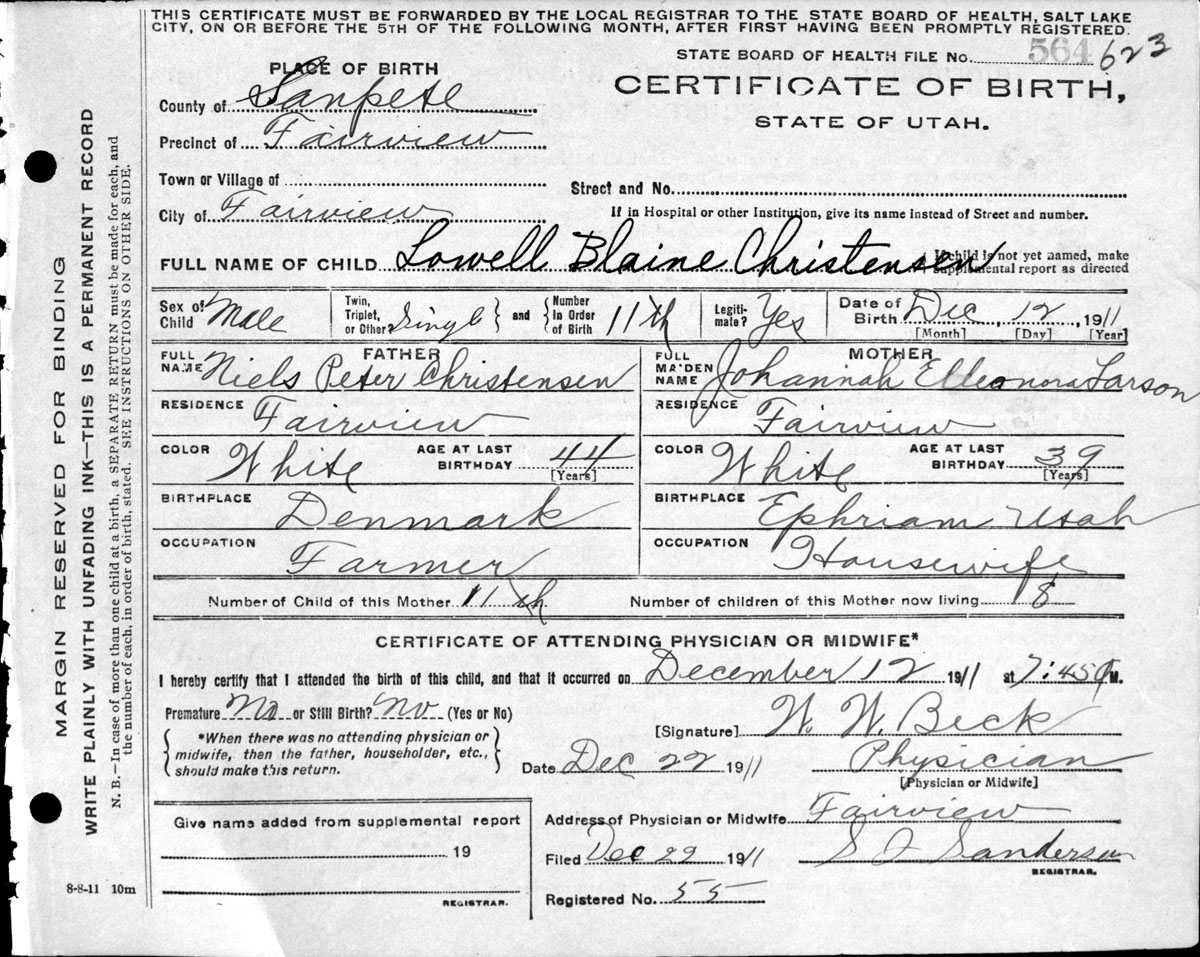 THIS CERTIFICATE MUST BE FORWARDED BY THE LOCAL REGISTRAR TO THE STATE BOARD OF HEALTH, SALT LAKE
CITY, ON OR BEFORE THE 5TH OF THE FOLLOWING MONTH, AFTER FIRST HAVING BEEN PROMPTLY REGISTERED.
STATE BOARD OF HEALTH FILE No. 564 623
PLACE OF BIRTH
CERTIFICATE OF BIRTH,
STATE OF UTAH.
County of Sanpete
Precinct of Fairview
Town or Village of
Street and No.
City of Fairview
If in Hospital or other Institution, give its name instead of Street and number.
FULL NAME OF CHILD Lowell Blaine Christensen
If child is not yet named, make
supplemental report as directed
Sex of Child Male
Twin, Triplet, or Other? Singl
and
Number In Order of Birth 11th
Legiti-mate? Yes
Date of Birth Dec, 12, 1911
[Month] [Day] [Year]
FATHER
FULL NAME Niels Peter Christensen
MOTHER
FULL MAIDEN NAME Johannah Elleonora Larson
RESIDENCE Fairview
RESIDENCE Fairview
COLOR White
AGE AT LAST BIRTHDAY 44 [Years]
COLOR White
AGE AT LAST BIRTHDAY 39 [Years]
BIRTHPLACE Denmark
BIRTHPLACE Ephriam Utah
OCCUPATION Farmer
OCCUPATION Housewife
Number of Child of this Mother 11th
Number of children of this Mother now living 8
CERTIFICATE OF ATTENDING PHYSICIAN OR MIDWIFE*
I hereby certify that I attended the birth of this child, and that it occurred on December 12 1911 at 7:45 M.
Premature No or Still Birth? No (Yes or No)
*When there was no attending physician or
midwife, then the father, householder, etc.,
should make this return.
[Signature] W. W. Beck
Date Dec 22 1911
Physician
[Physician or Midwife]
Give name added from supplemental report
19
REGISTRAR.
Address of Physician or Midwife Fairview
Filed Dec 29 1911
S J Sanderson
REGISTRAR.
Registered No. 55
8-8-11 10m
MARGIN RESERVED FOR BINDING
WRITE PLAINLY WITH UNFADING INK—THIS IS A PERMANENT RECORD
N. B.—In case of more than one child at a birth, a SEPARATE RETURN must be made for each, and
the number of each, in order of birth, stated. SEE INSTRUCTIONS ON OTHER SIDE.